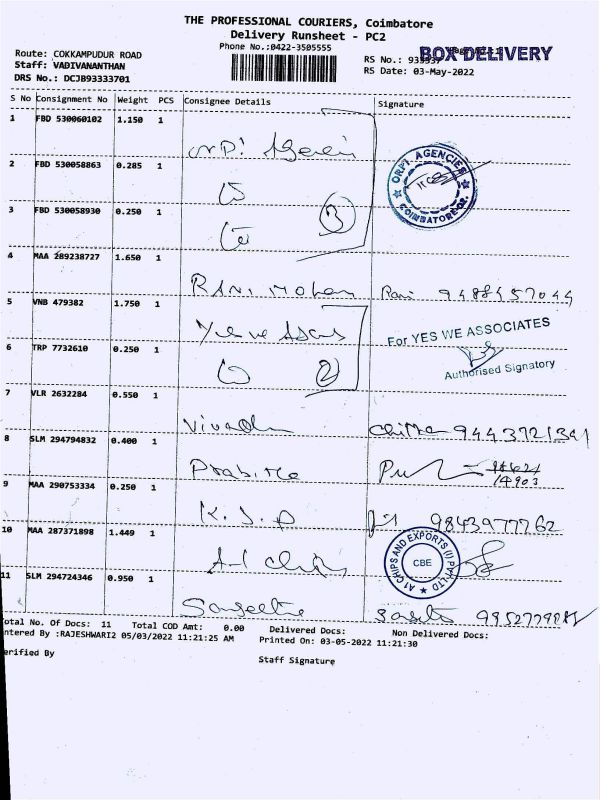 THE PROFESSIONAL COURIERS, Coimbatore
Delivery Runsheet - PC2
Phone No.:0422-3505555
Route: COKKAMPUDUR ROAD
Staff: VADIVANANTHAN
DRS No.: DCJB93333701
RS No.: 933337
BOX DELIVERY
RS Date: 03-May-2022
S No Consignment No Weight PCS Consignee Details Signature
1 FBD 530060102 1.150 1
ORPI Agencies
2 FBD 530058863 0.285 1
3 FBD 530058930 0.250 1
3
ORPI AGENCIES
COIMBATORE
4 MAA 289238727 1.650 1
Rani Mohan Rani 9488457044
5 VNB 479382 1.750 1
For YES WE ASSOCIATES
6 TRP 7732610 0.250 1
2
Authorised Signatory
7 VLR 2632284 0.550 1
Chitra 9443721391
8 SLM 294794832 0.400 1
9 MAA 290753334 0.250 1
K.J.P 9843977762
10 MAA 287371898 1.449 1
A1 Chips
A1 CHIPS AND EXPORTS (I) PVT LTD
CBE
11 SLM 294724346 0.950 1
Sangeetha
Total No. Of Docs: 11 Total COD Amt: 0.00 Delivered Docs: Non Delivered Docs:
ntered By :RAJESHWARI2 05/03/2022 11:21:25 AM Printed On: 03-05-2022 11:21:30
erified By
Staff Signature